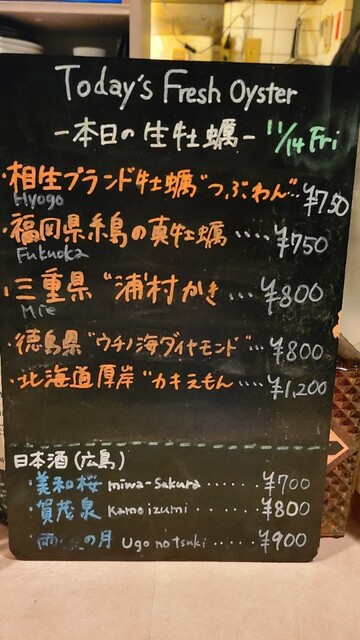 Today's Fresh Oyster
-本日の生牡蠣- 11/14 Fri
・相生ブランド牡蠣"つぶわん"…¥750
Hyogo
・福岡県糸島の真牡蠣‥‥¥750
Fukuoka
・三重県"浦村かき…¥800
Mie
・徳島県"ウチノ海ダイヤモンド"…¥800
・北海道厚岸"カキえもん‥‥¥1,200
日本酒(広島)
・美和桜 miwa-sakura‥‥‥¥700
・賀茂泉 Kamoizumi‥‥‥¥800
・雨後の月 Ugo no tsuki‥‥‥¥900